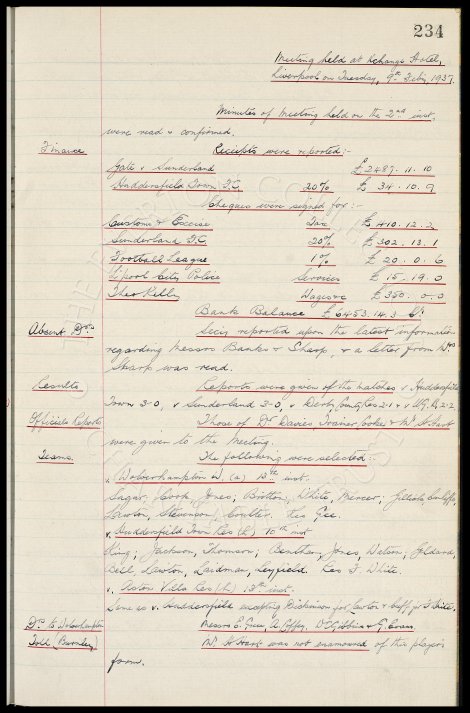 234
Meeting held at Exchange Hotel,
Liverpool on Tuesday, 9th Feby, 1937.
Minutes of Meeting held on the 2nd inst,
were read & confirmed.
Finance Receipts were reported:-
Gate v Sunderland £2487. 11. 10
Huddersfield Town F.C. 20% £ 34. 10. 9
Cheques were signed for:-
Customs & Excise Tax £ 410. 12. 2
Sunderland F.C. 20% £ 302. 13. 1
Football League 1% £ 20. 0. 6
L'pool City Police Services £ 15. 19. 0
Theo Kelly Wages &c £ 350. 0. 0
Bank Balance £ 6453. 14. 3
Absent Drs Secy reported upon the latest information
regarding Messrs Banks & Sharp, & a letter from Mrs
Sharp was read.
Results Reports were given of the matches v Huddersfield
Town 3-0, v Sunderland 3-0, v Derby County Res 2-1 & v 2-2,
Officials Reports Those of Dr Davies Trainer Cooke & Mr H. Hart
were given to the Meeting.
Teams. The following were selected:-
v. Wolverhampton W. (a) 13th inst.
Sagar; Cook, Jones; Britton, White, Mercer; Gillick, Cunliffe,
Lawton, Stevenson, Coulter. Res Gee.
v. Huddersfield Town Res (h) 10th inst
King; Jackson, Thomson; Bentham, Jones, Watson; Geldard,
Bell, Lawton, Laidman, Leyfield. Res J. White.
v. Aston Villa Res (h) 13th inst.
Same as v. Huddersfield excepting Dickinson for Lawton & Cuff for J. White.
Drs to Wolverhampton Messrs E. Green, A. Coffey, W. C. Gibbins & G. Evans.
Toll (Burnley) Mr. H. Hart was not enamoured of this player's
form.